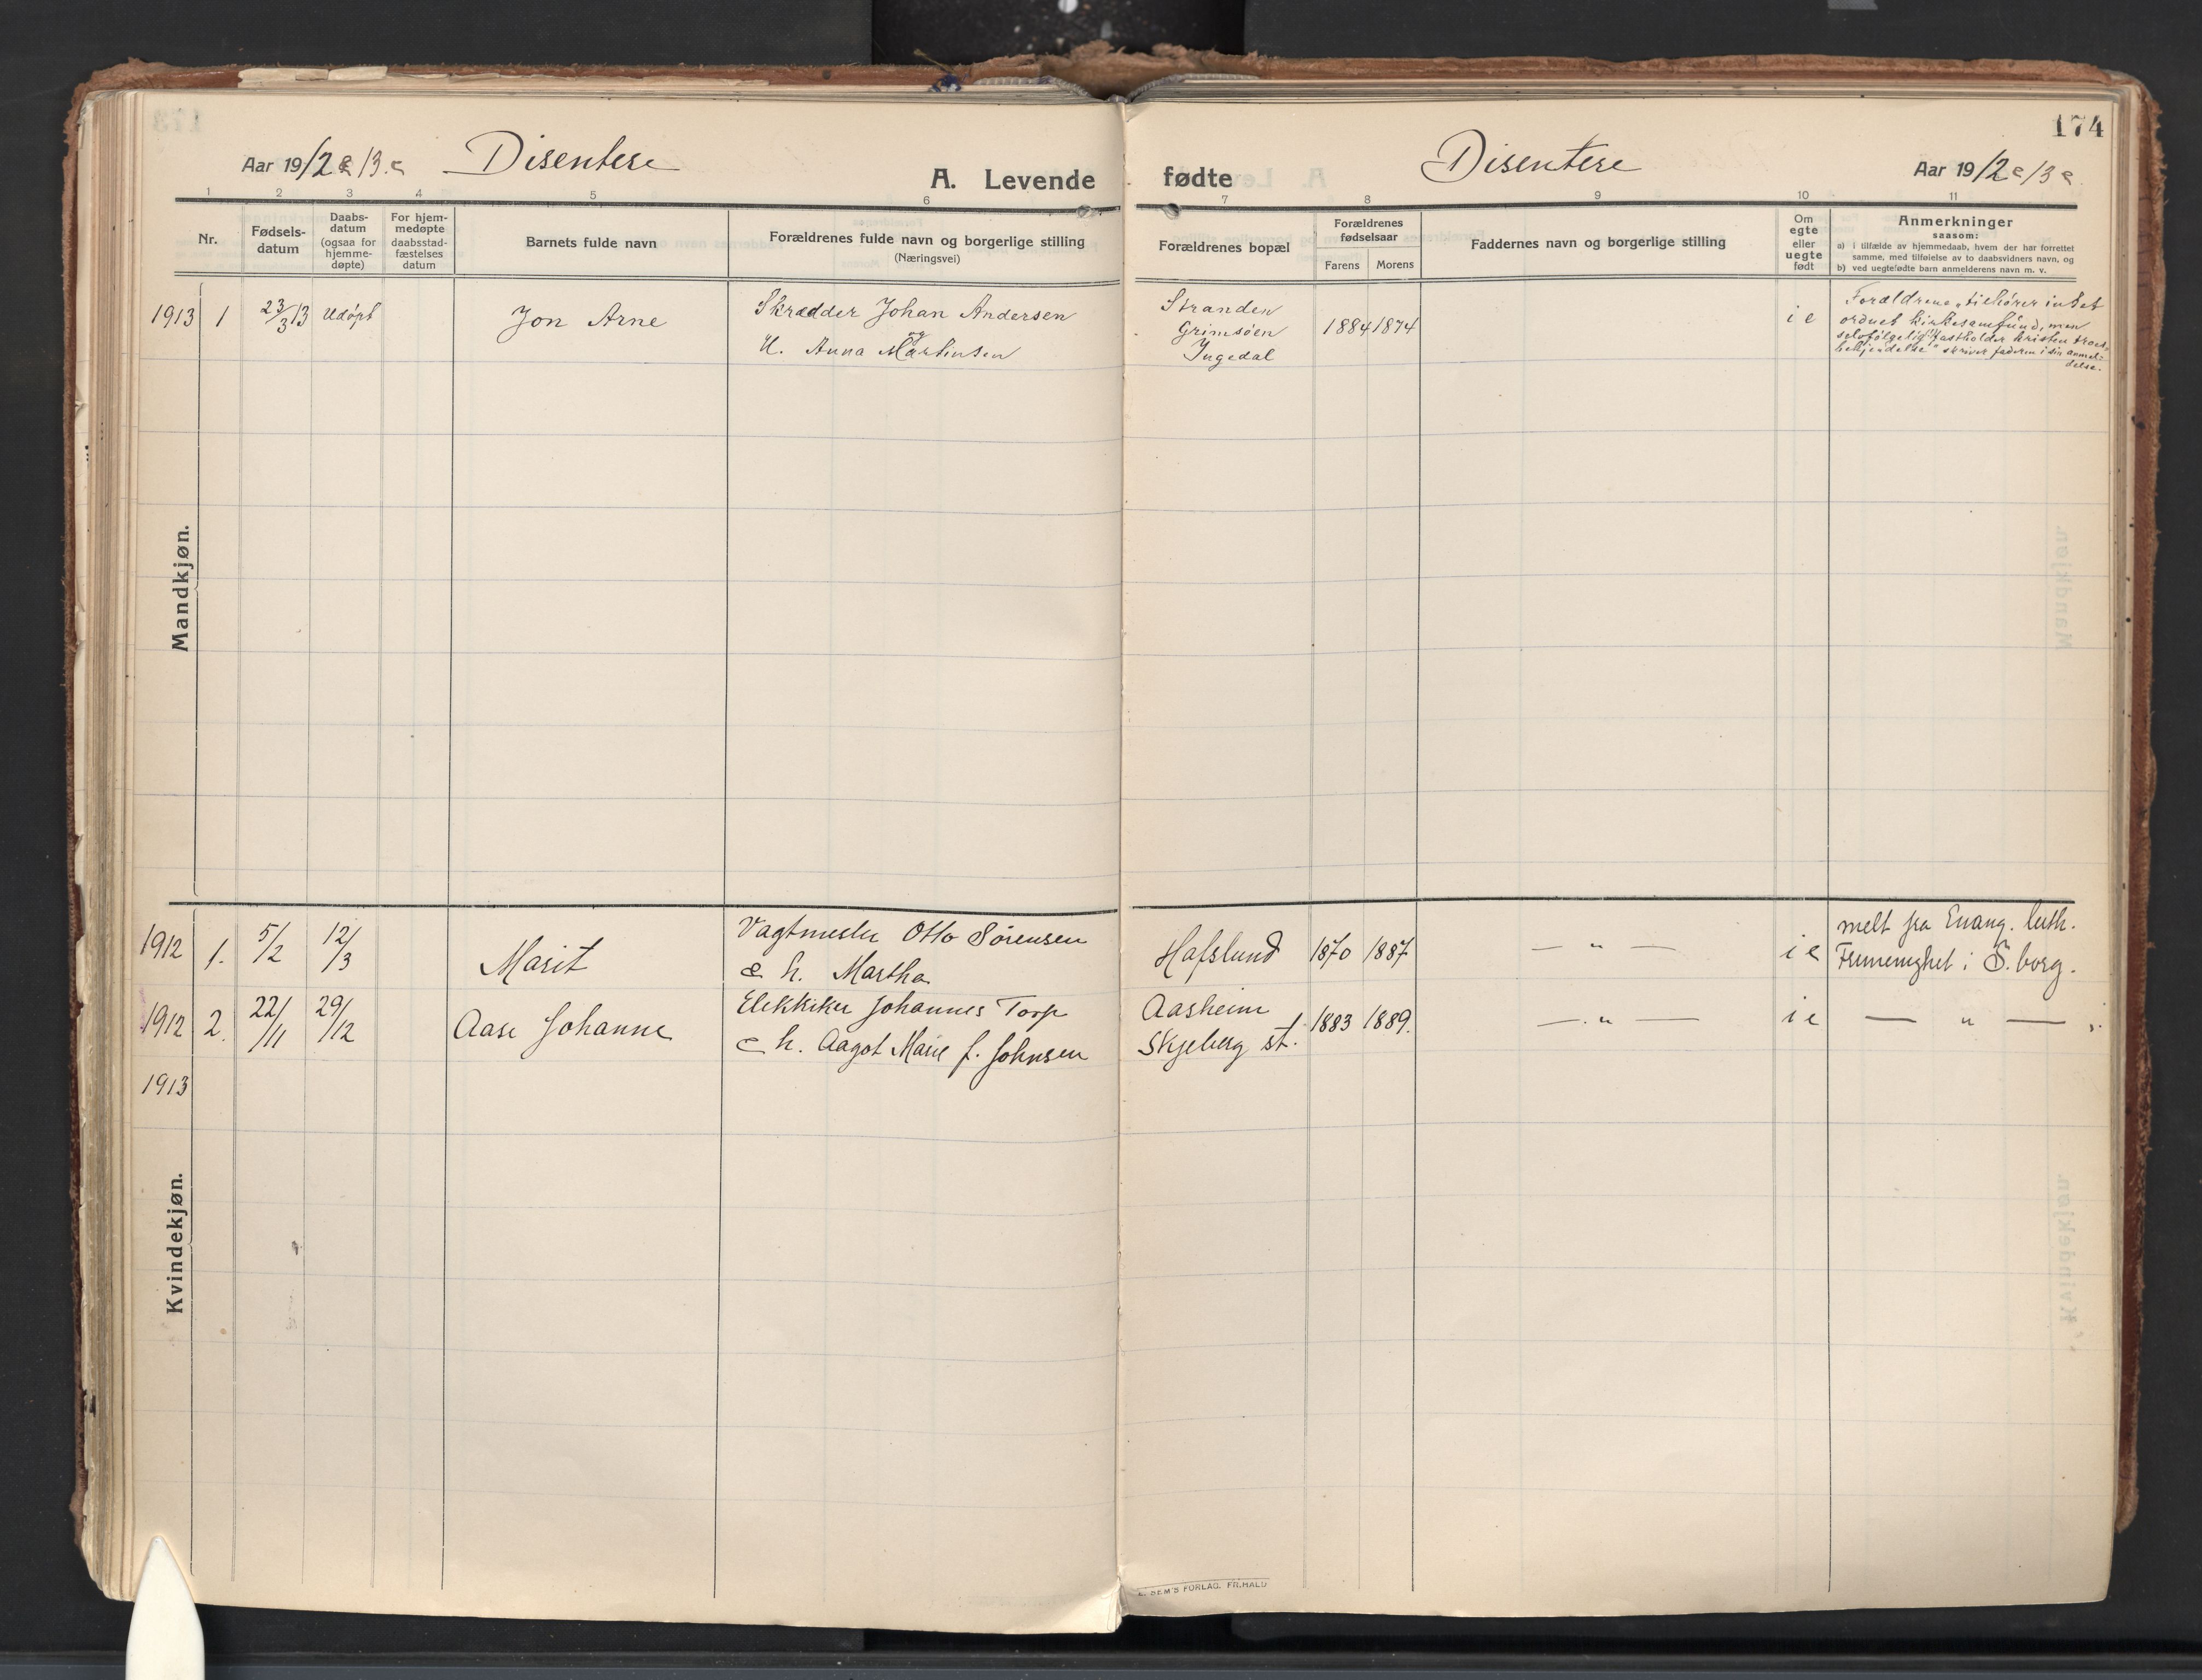 174
Aar 1912 & 13. Disentere
A. Levende fødte
Disentere
Aar 1912 & 13
1 2 3 4 5 6 7 8 9 10 11
Nr.
Fødsels-
datum
Daabs-
datum
(ogsaa for
hjemme-
døpte)
For hjem-
medøpte
daabsstad-
fæstelses
datum
Barnets fulde navn
Forældrenes fulde navn og borgerlige stilling
(Næringsvei)
Forældrenes bopæl
Forældrenes
fødselsaar
Farens Morens
Faddernes navn og borgerlige stilling
Om
egte
eller
uegte
født
Anmerkninger
saasom:
a) i tilfælde av hjemmedaab, hvem der har forrettet
samme, med tilføielse av to daabsvidners navn, og
b) ved uegtefødte barn anmelderens navn m. v.
Mandkjøn.
1913 1 23/3 13 Udøpt
Jon Arne
Skrædder Johan Andersen
og
H. Anna Martinsen
Stranden
Grimsøen
Ingedal
1884 1874
i e
Forældrene „tilhører intet
ordnet kirkesamfund, men
selvfølgelig fastholder kristen troes-
bekjendelse" skriver faderen i sin anmel-
delse.
Kvindekjøn.
1912 1. 5/2 12/3
Marit
Vagtmester Otto Sørensen
& h. Martha
Hafslund
1870 1887
— „ —
i e
melt fra Evang. luth.
Frimenighet i S.borg.
1912 2. 22/11 29/12
Aase Johanne
Elektriker Johannes Torp
& h. Aagot Marie f. Johnsen
Aasheim
Skjeberg st.
1883 1889.
— „ —
i e
— „ —
1913
E. SEM'S FORLAG. FR.HALD